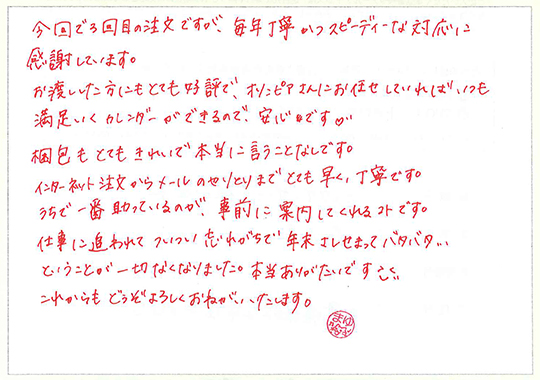 今回で3回目の注文ですが、毎年丁寧かつスピーディーな対応に
感謝しています。
お渡しした方にもとても好評で、オリンピアさんにお任せしていればいつも
満足いくカレンダーができるので、安心です♡
梱包もとてもきれいで本当に言うことなしです。
インターネット注文からメールのやりとりまでとても早く、丁寧です。
うちで一番助っているのが、事前に案内してくれるコトです。
仕事に追われてついつい忘れがちで年末さしせまってバタバタ…
ということが一切なくなりました。本当ありがたいです
これからもどうぞよろしくおねがいいたします。